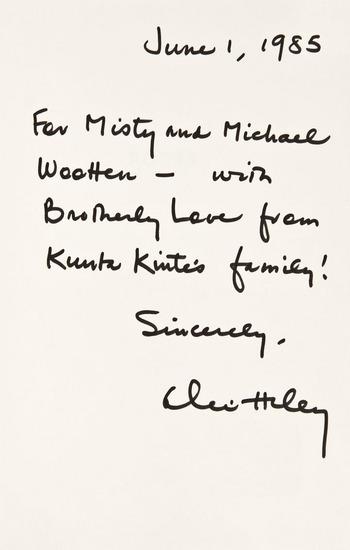 June 1, 1985
For Misty and Michael
Wootten – with
Brotherly Love from
Kunta Kinte's family!
Sincerely,
Alex Haley